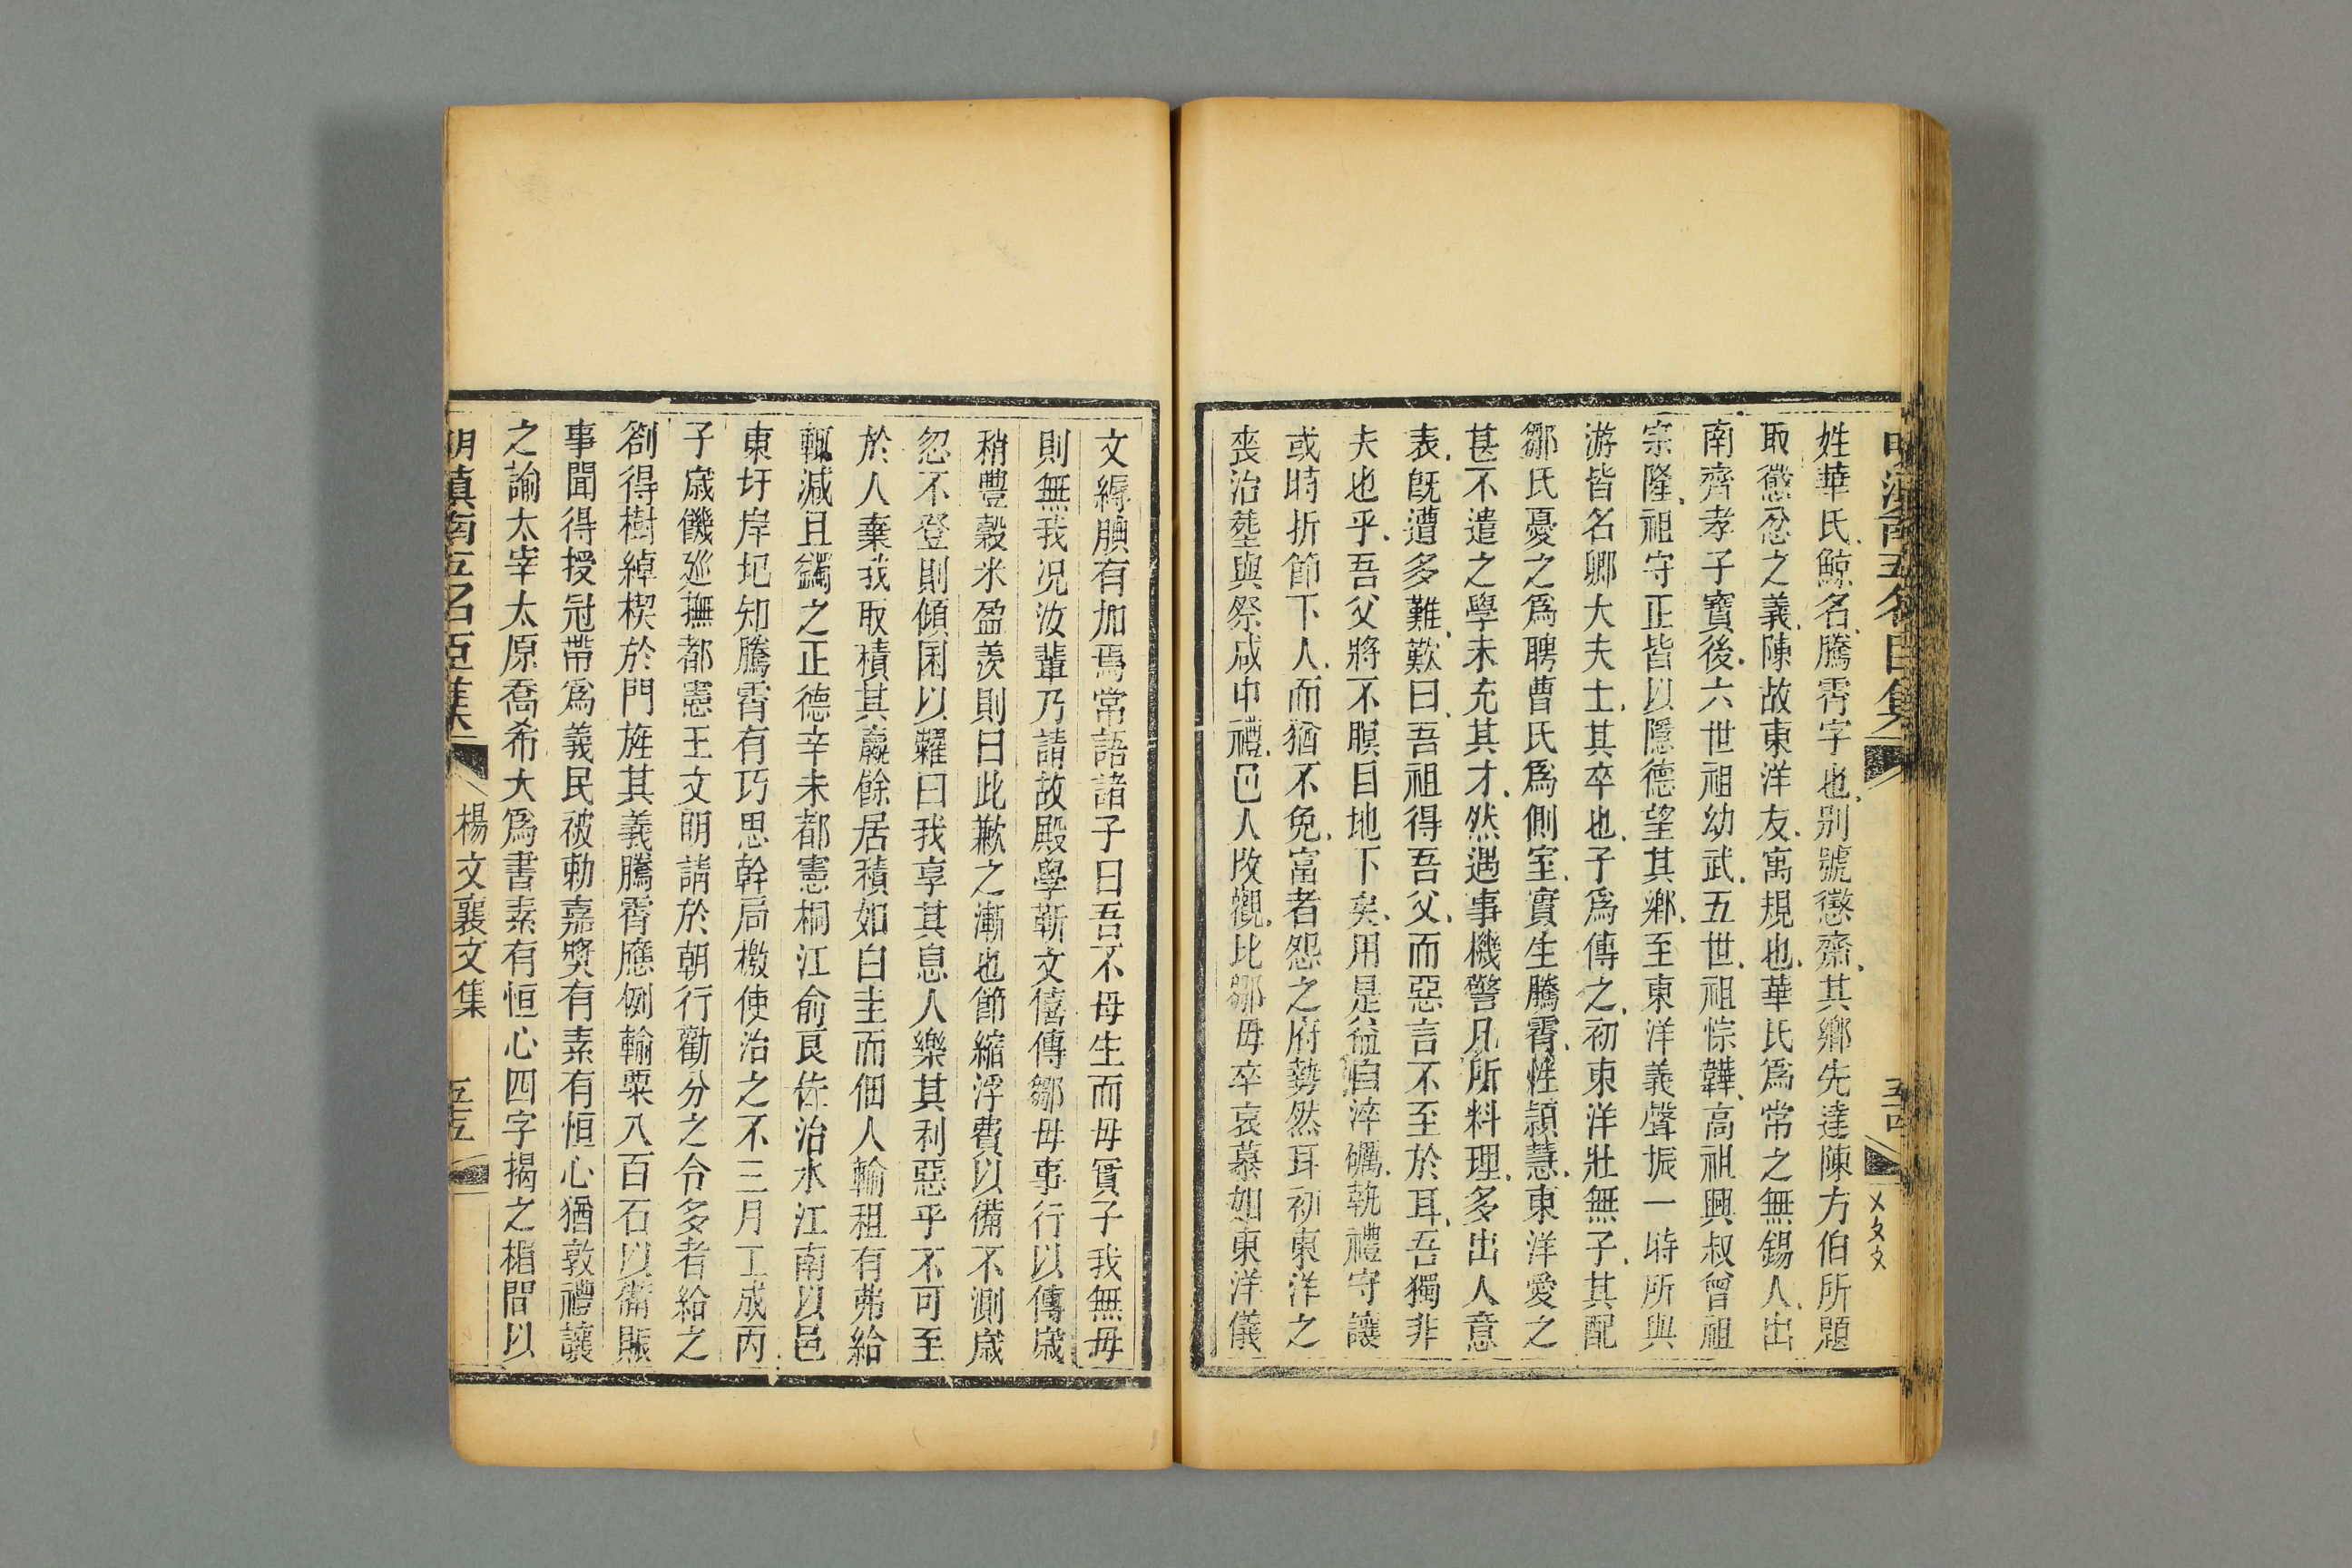 姓華氏鯨名騰霄字也別號懲齋其鄉先達陳方伯所題
取懲忿之義陳故東洋友寓規也華氏爲常之無錫人出
南齊孝子寳後六世祖幼武五世祖悰韡高祖興叔曾祖
宗隆祖守正皆以隱德望其鄉至東洋義聲振一時所與
游皆名卿大夫士其卒也子爲傳之初東洋壯無子其配
鄒氏憂之爲聘曹氏爲側室實生騰霄性頴慧東洋愛之
甚不遣之學未充其才然遇事機警凡所料理多出人意
表旣遭多難歎曰吾祖得吾父而惡言不至於耳吾獨非
夫也乎吾父將不瞑目地下矣用是益自淬礪執禮守讓
或時折節下人而猶不免富者怨之府勢然耳初東洋之
喪治塟與祭咸中禮邑人改觀比鄒母卒哀慕如東洋儀
文縟腆有加焉常語諸子曰吾不母生而母實子我無母
則無我況汝輩乃請故殿學靳文僖傳鄒母事行以傳歲
稍豐穀米盈羨則曰此歉之漸也節縮浮費以備不測歲
忽不登則傾囷以糶曰我享其息人樂其利惡乎不可至
於人棄我取積其贏餘居積如白圭而佃人輸租有弗給
輒減且蠲之正德辛未都憲桐江俞良佐治水江南以邑
東圩岸圯知騰霄有巧思幹局檄使治之不三月工成丙
子歲饑巡撫都憲王文明請於朝行勸分之令多者給之
劄得樹綽楔於門旌其義騰霄應例輸粟八百石以備賑
事聞得授冠帶爲義民被勅嘉奬有素有恒心猶敦禮讓
之諭太宰太原喬希大爲書素有恒心四字揭之楣間以
明滇南五名臣集 楊文襄文集 五五